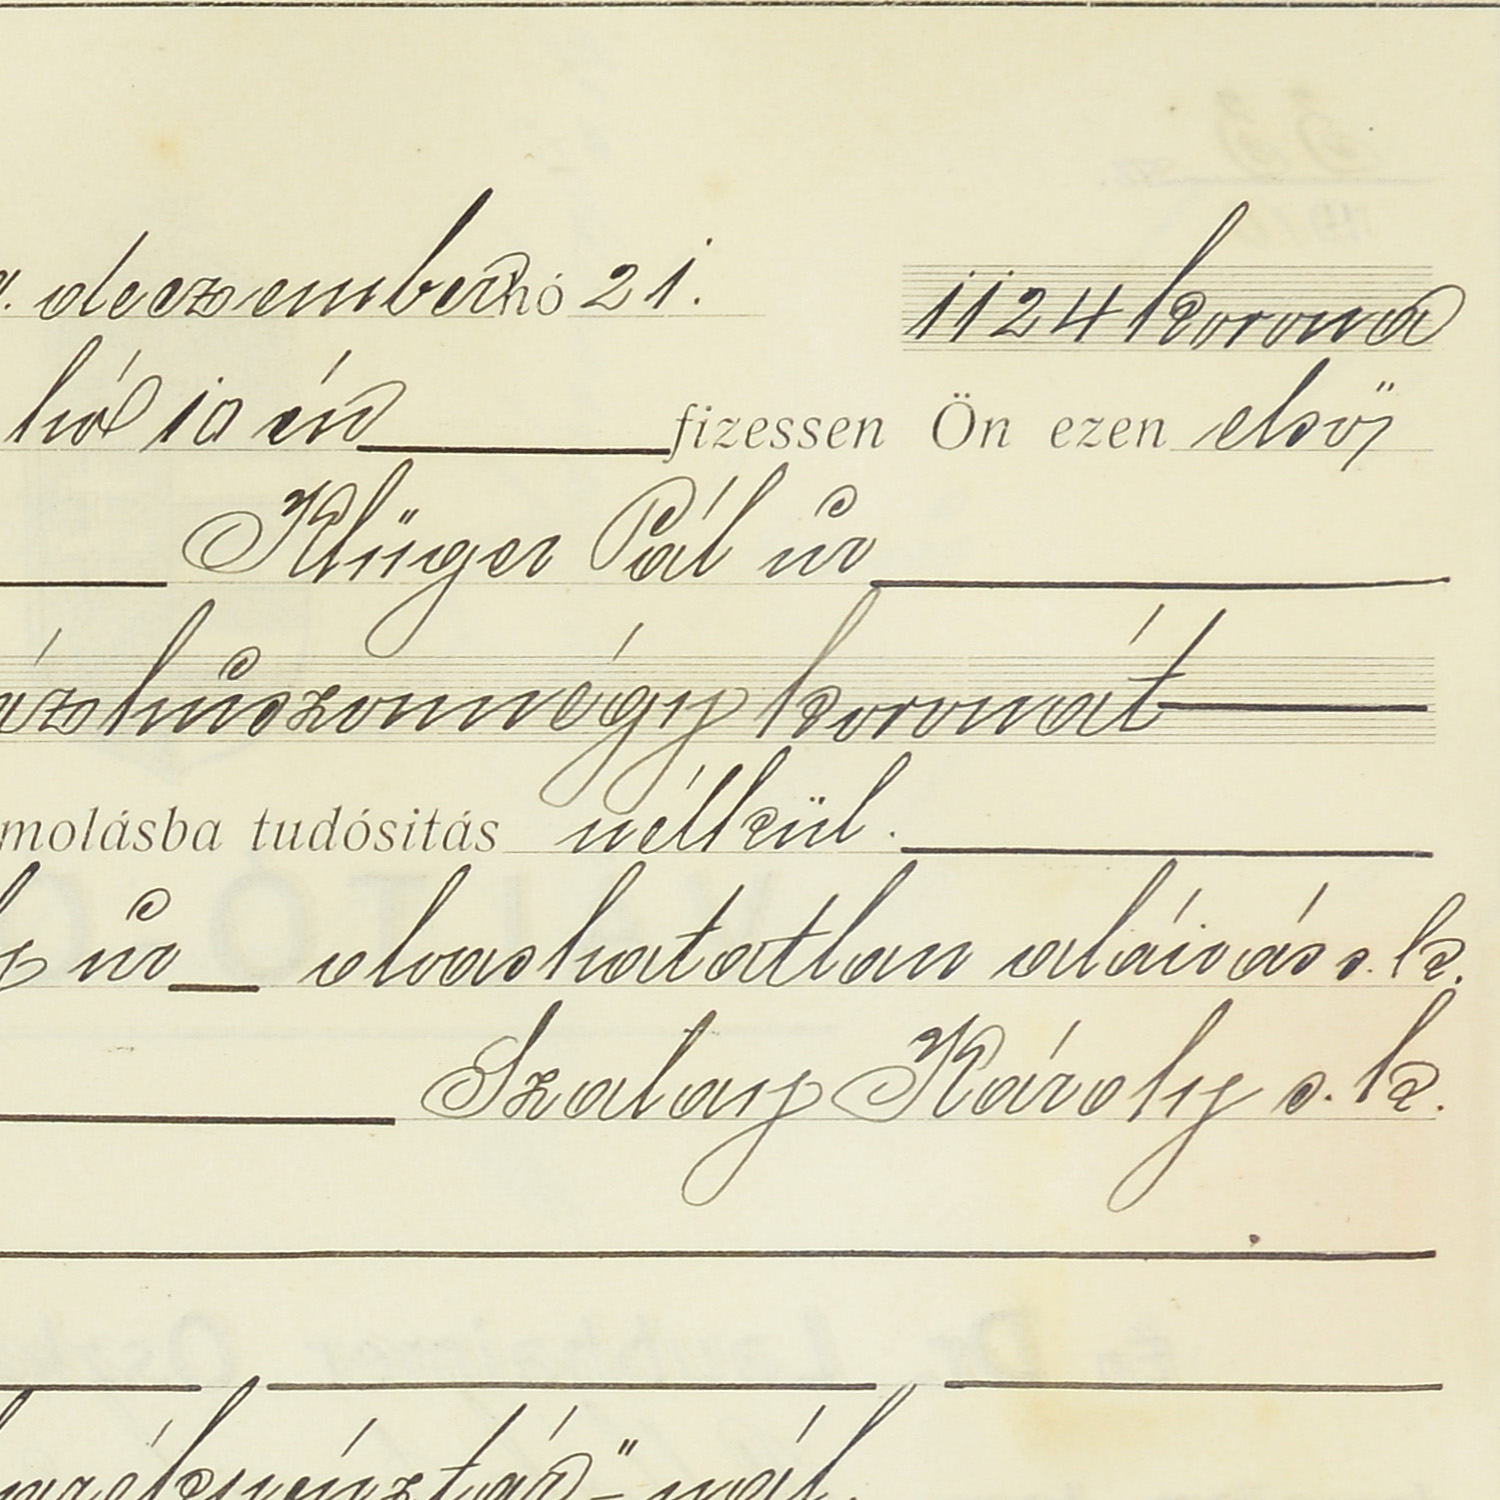 deczember hó 21. 1124 korona
hó 10 én fizessen Ön ezen első
Klüger Pál úr
ázhúszonnégy koronát
molásba tudósitás nélkül.
úr olvashatatlan aláirás s. k.
Szalay Károly s. k.
nál.